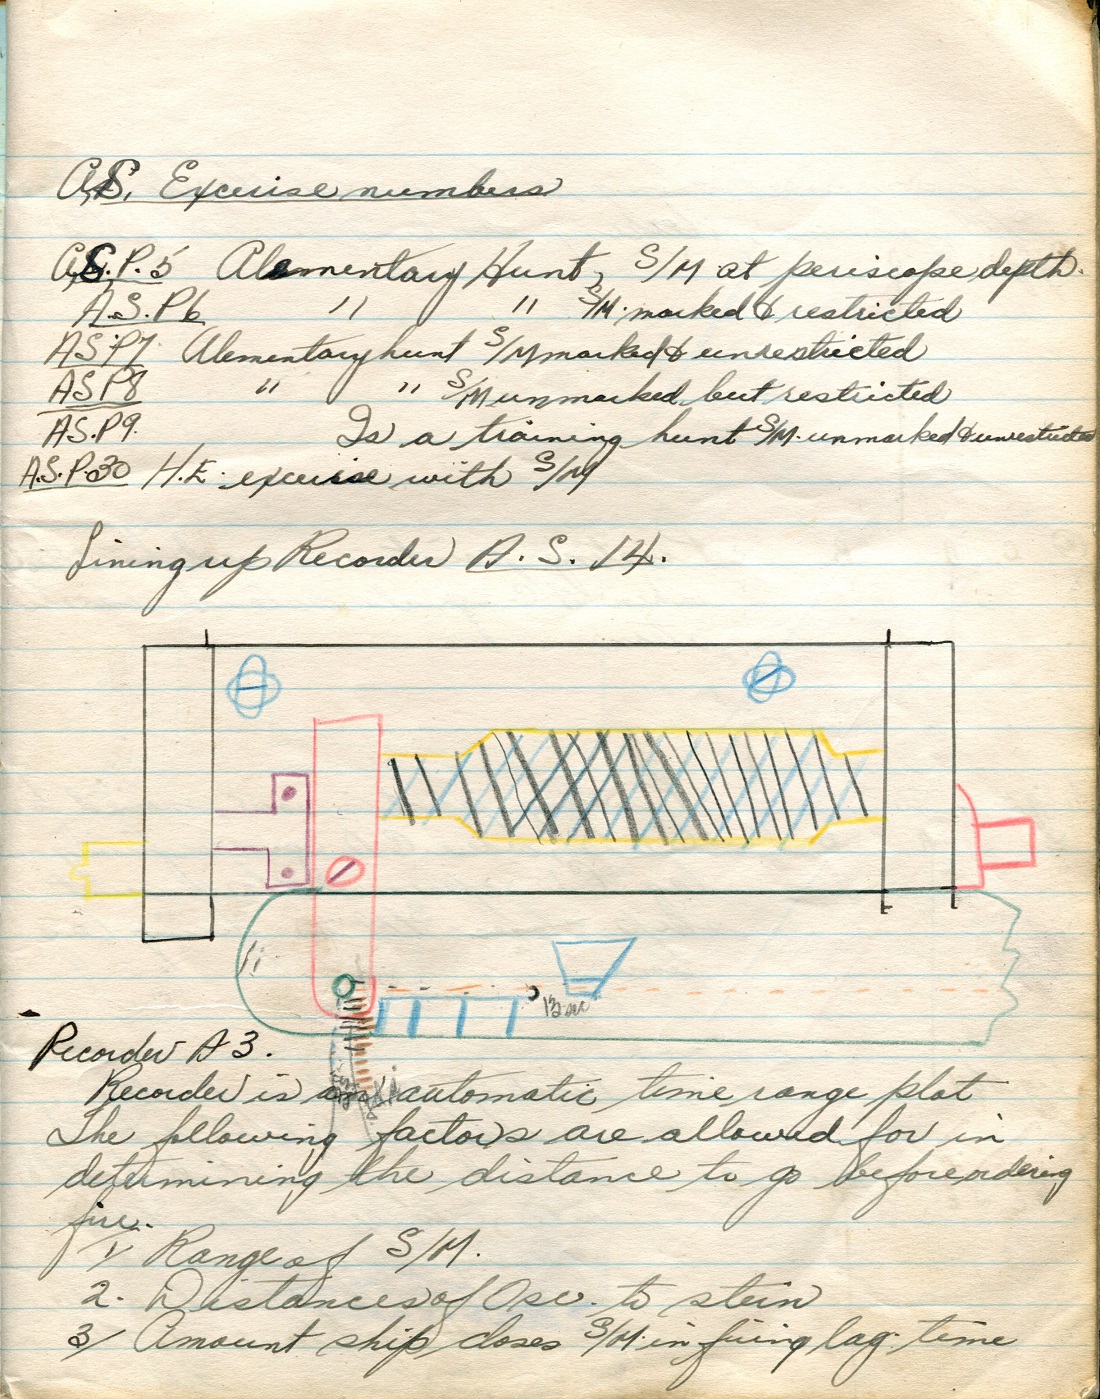 A.S. Excerise numbers
A.S.P.5 Alementary Hunt, S/M at periscope depth.
A.S.P6 " " S/M. marked & restricted
ASP7 Alementary hunt S/M marked & unrestricted
ASP8 " " S/M unmarked but restricted
AS.P9. Is a training hunt S/M. unmarked & unrestricted
A.S.P.30 H.E. excerise with S/M
Lining up Recorder A.S. 14.
1½ sec
Recorder A3.
Recorder is an automatic time range plot
The following factors are allowed for in
determining the distance to go before ordering
fire.
1/ Range of S/M.
2. Distances of Osc. to stern
3/ Amount ship closes S/M. in firing lag time